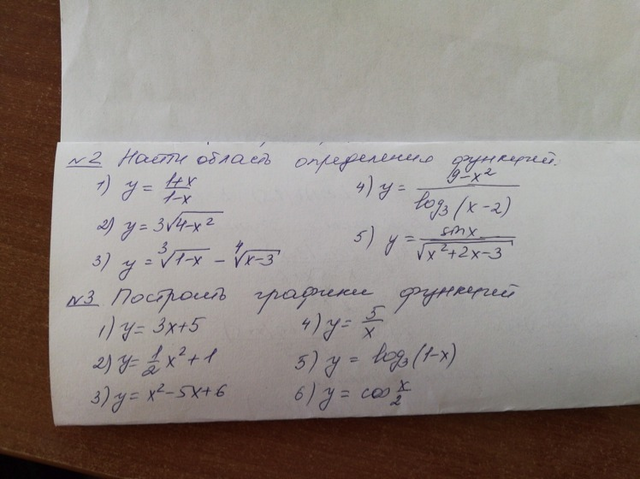 №2 Найти область определения функций.
1) y = (1+x)/(1-x)
2) y = 3√(4-x²)
3) y = ³√(1-x) - ⁴√(x-3)
4) y = (9-x²)/(log₃(x-2))
5) y = sin x/√(x²+2x-3)
№3 Построить графики функций
1) y = 3x+5
2) y = 1/2 x²+1
3) y = x²-5x+6
4) y = 5/x
5) y = log₃(1-x)
6) y = cos x/2